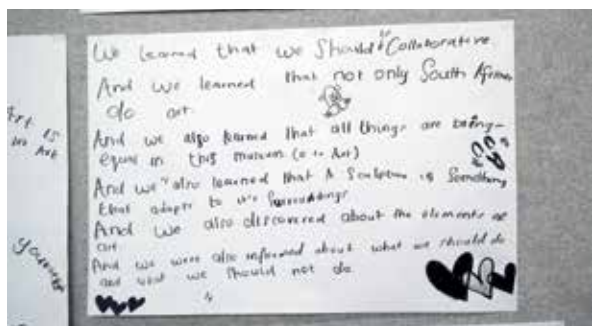 We learned that we should be Collaborative.
And we learned that not only South African
do art.
And we also learned that all things are being
equal in this museum
And we also learned that A Sculpture is Something
that adapts to it's Surroundings
And we also discovered about the elements of
art.
And we were also informed about what we should do
and what we should not do.
Art is
yourself